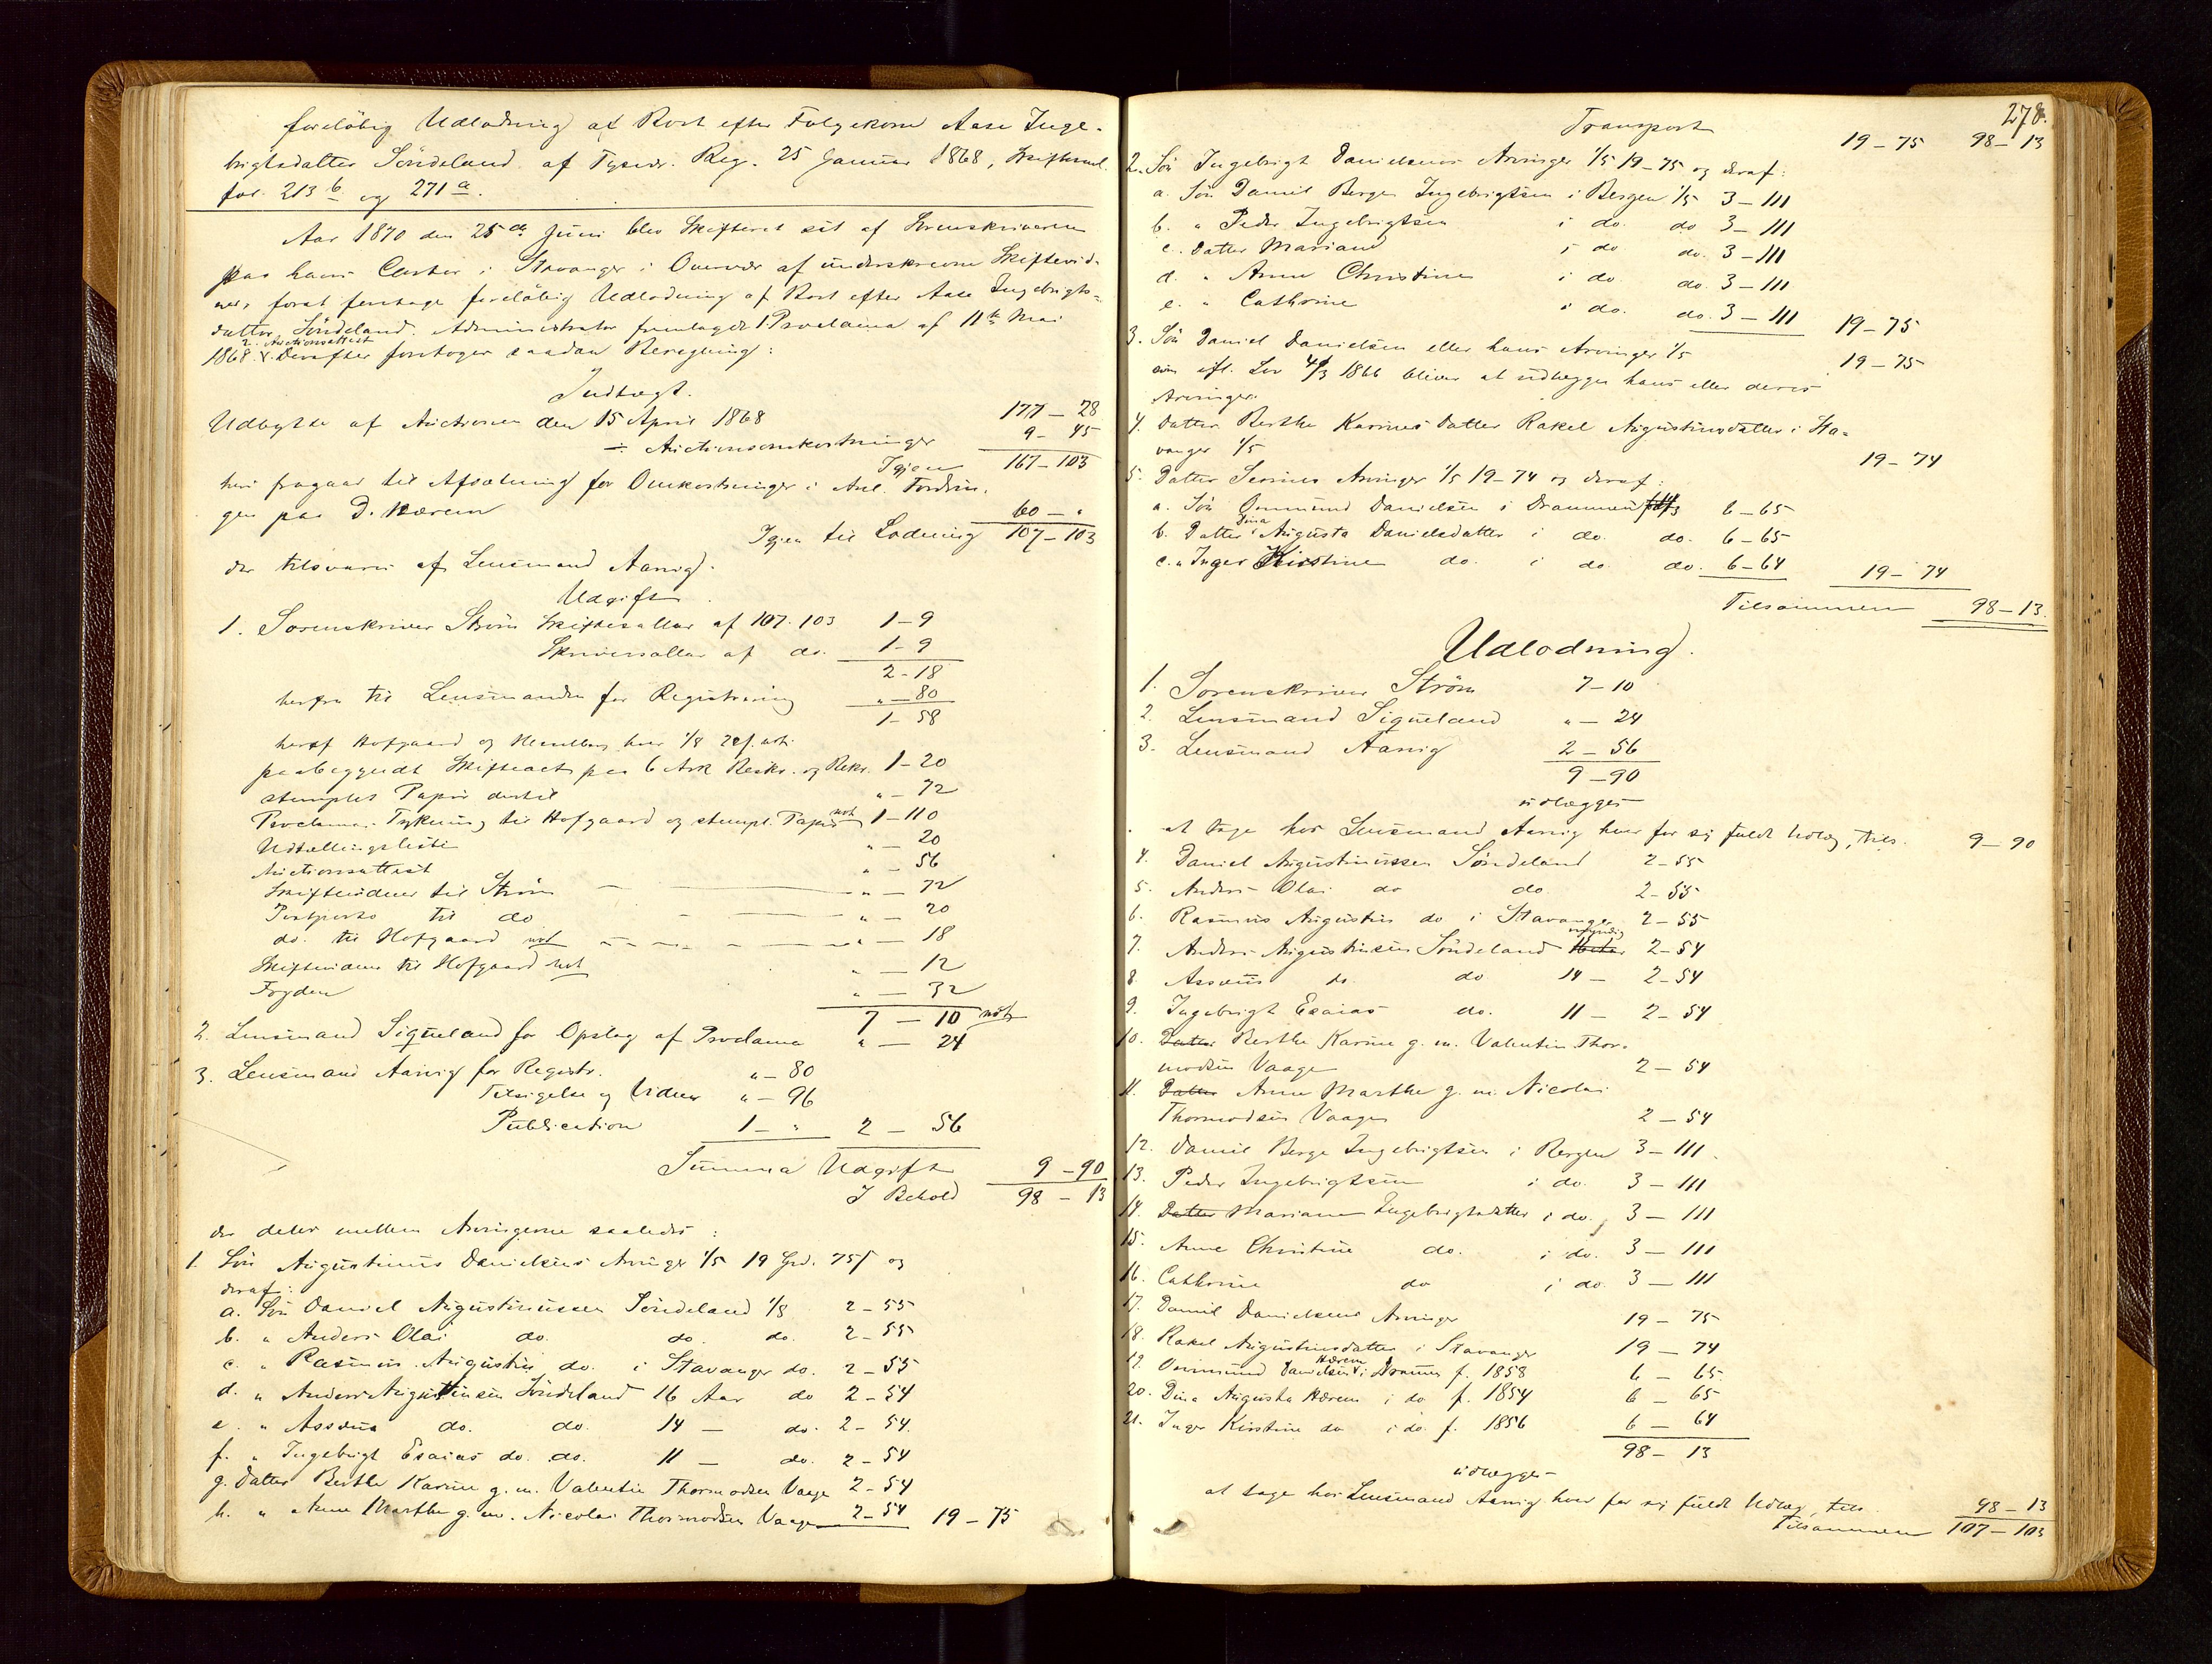 foreløbig Udlodning af Boet efter Følgekone Aase Inge-
brigtsdatter Söndeland af Tysvær. Reg. 25 Januar 1868, Skifteprot.
fol. 213 b og 271 a.
Aar 1870 den 25de Juni blev Skifteret sat af Sorenskriveren
paa hans Contor i Stavanger i Overvær af underskrevne Skiftevid-
ner, forat foretage foreløbig Udlodning af Boet efter Aase Ingebrigts-
datter Söndeland. Administrator fremlagde 1. Proclama af 11te Mai
1868. 2. Auctionsattest Derefter foretoges saadan Beregning:
Indtægt.
Udbytte af Auctionen den 15 April 1868 177 – 28
÷ Auctionsomkostninger 9 – 45
Igjen 167 – 103
heri fragaar til Afsætning for Omkostninger i Anl. Fordrin-
gen paa D. Hærem 60 – "
Igjen til Lodning 107 – 103
der tilsvares af Lensmand Aarvig.
Udgift.
1. Sorenskriver Ström Skiftesallar af 107. 103 1 – 9
Skriversallar af do. 1 – 9
2 – 18
herfra til Lensmanden for Registrering " – 80
1 – 58
heraf Hofgaard og hver 1/8
paabegyndt Skifteact paa 6 Ark Beskr. og Rekv. 1 – 20
stemplet Papir dertil " – 72
Proclama. Trykning til Hofgaard og stempl. Papir not 1 – 110
Udtællingsliste " – 20
Auctionsattest " – 56
Skiftevidner til Ström " – 72
Postporto til do " – 20
do. til Hofgaard not " – 18
Skiftevidner til Hofgaard not " – 12
Fogden " – 32
7 – 10 not
2. Lensmand Sigveland for Opslag af Proclama " – 24
3. Lensmand Aarvig for Registr. " – 80
Tilsigelse og Vidner " – 96
Publication 1 – " 2 – 56
Summa Udgift 9 – 90
I Behold 98 – 13
der deles mellem Arvingerne saaledes:
1. Sön Augustinus Danielsens Arvinger 1/5 19 Spd. 75 ß og
deraf:
a. Sön Daniel Augustinussen Söndeland 1/8 2 – 55
b. " Anders Olai do. do. do. 2 – 55
c. " Rasmus Augustin do. i Stavanger do. 2 – 55
d. " Anders Augustinsen Söndeland 16 Aar do 2 – 54
e. " Assenus do. do. 14 – do. 2 – 54
f. " Ingebrigt Esaias do. do. 11 – do. 2 – 54
g. Datter Berthe Karine g. m. Valentin Thormodsen Vaage 2 – 54
h. " Anne Marthe g. m. Nicolai Thormodsen Vaage 2 – 54 19 – 75
278.
Transport 19 – 75 98 – 13
2. Sön Ingebrigt Danielsens Arvinger 1/5 19 – 75 og deraf:
a. Sön Daniel Berge Ingebrigtsen i Bergen 1/5 3 – 111
b. " Peder Ingebrigtsen i do. do 3 – 111
c. Datter Mariane i do do. 3 – 111
d. " Anne Christine i do do. 3 – 111
e. " Cathrine i do. do. 3 – 111 19 – 75
3. Sön Daniel Danielsen eller hans Arvinger 1/5 19 – 75
som ifl. Lov 1866 bliver at udlægge hans eller deres
Arvinger.
4. Datter Berthe Karines Datter Rakel Augustinusdatter i Sta-
vanger 1/5 19 – 74
5. Datter Serines Arvinger 1/5 19 – 74 og deraf:
a. Sön Ommund Danielsen i Drammen 1/3 6 – 65
b. Datter Dina Augusta Danielsdatter i do. do. 6 – 65
c. " Inger Kirstine do. i do. do. 6 – 64 19 – 74
Tilsammen 98 – 13.
Udlodning.
1. Sorenskriver Ström 7 – 10
2. Lensmand Sigveland " – 24
3. Lensmand Aarvig 2 – 56
9 – 90
udlægges
at tage hos Lensmand Aarvig hver for sig fuldt Udlæg, tils. 9 – 90
4. Daniel Augustinussen Söndeland 2 – 55
5. Anders Olai do do. 2 – 55
6. Rasmus Augustin do i Stavanger 2 – 55
7. Anders Augustinsen Söndeland umyndig 2 – 54
8. Assenus do. do 14 – 2 – 54
9. Ingebrigt Esaias do. 11 – 2 – 54
10. Datter Berthe Karine g. m. Valentin Thor-
modsen Vaage 2 – 54
11. Datter Anne Marthe g. m. Nicolai
Thormodsen Vaage 2 – 54
12. Daniel Berge Ingebrigtsen i Bergen 3 – 111.
13. Peder Ingebrigtsen i do. 3 – 111
14. Datter Mariane Ingebrigtsdatter i do. 3 – 111
15. Anne Christine do. i do. 3 – 111
16. Cathrine do i do. 3 – 111
17. Daniel Danielsens Arvinger 19 – 75
18. Rakel Augustinusdatter i Stavanger 19 – 74
19. Ommund Danielsen Hærem i Drammen f. 1858 6 – 65.
20. Dina Augusta Hærem i do f. 1854 6 – 65
21. Inger Kirstine do i do. f. 1856 6 – 64
98 – 13
udlægges
at tage hos Lensmand Aarvig hver for sig fuldt Udlæg, tils. 98 – 13
Tilsammen 107 – 103